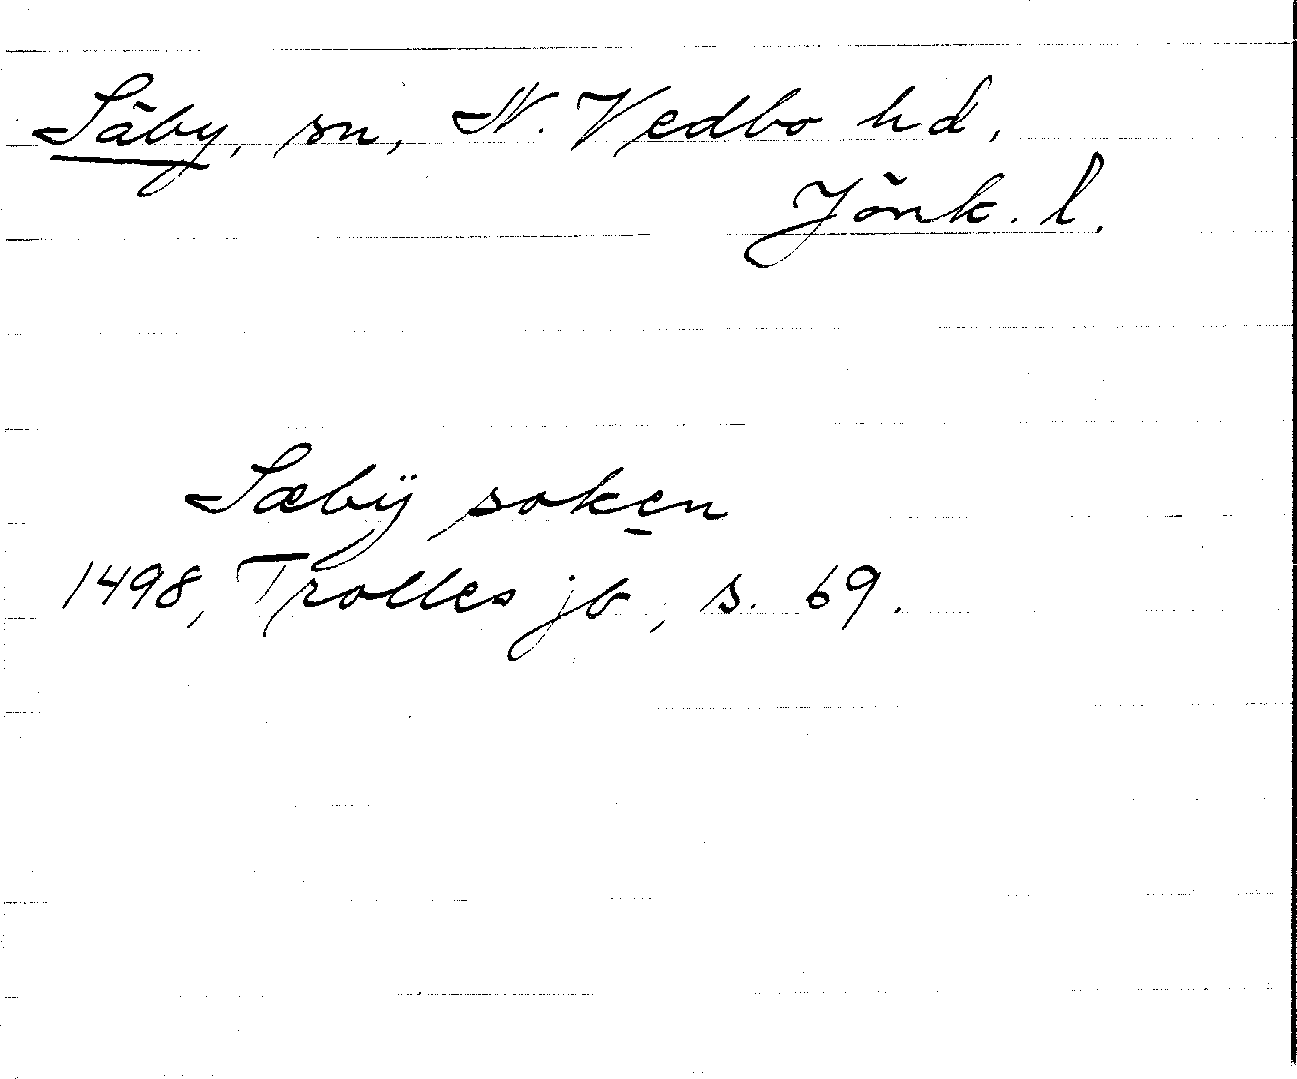 Säby, sn, N. Vedbo hd,
Jönk. l.
Sæbÿ soken
1498, Trolles jb, s. 69.